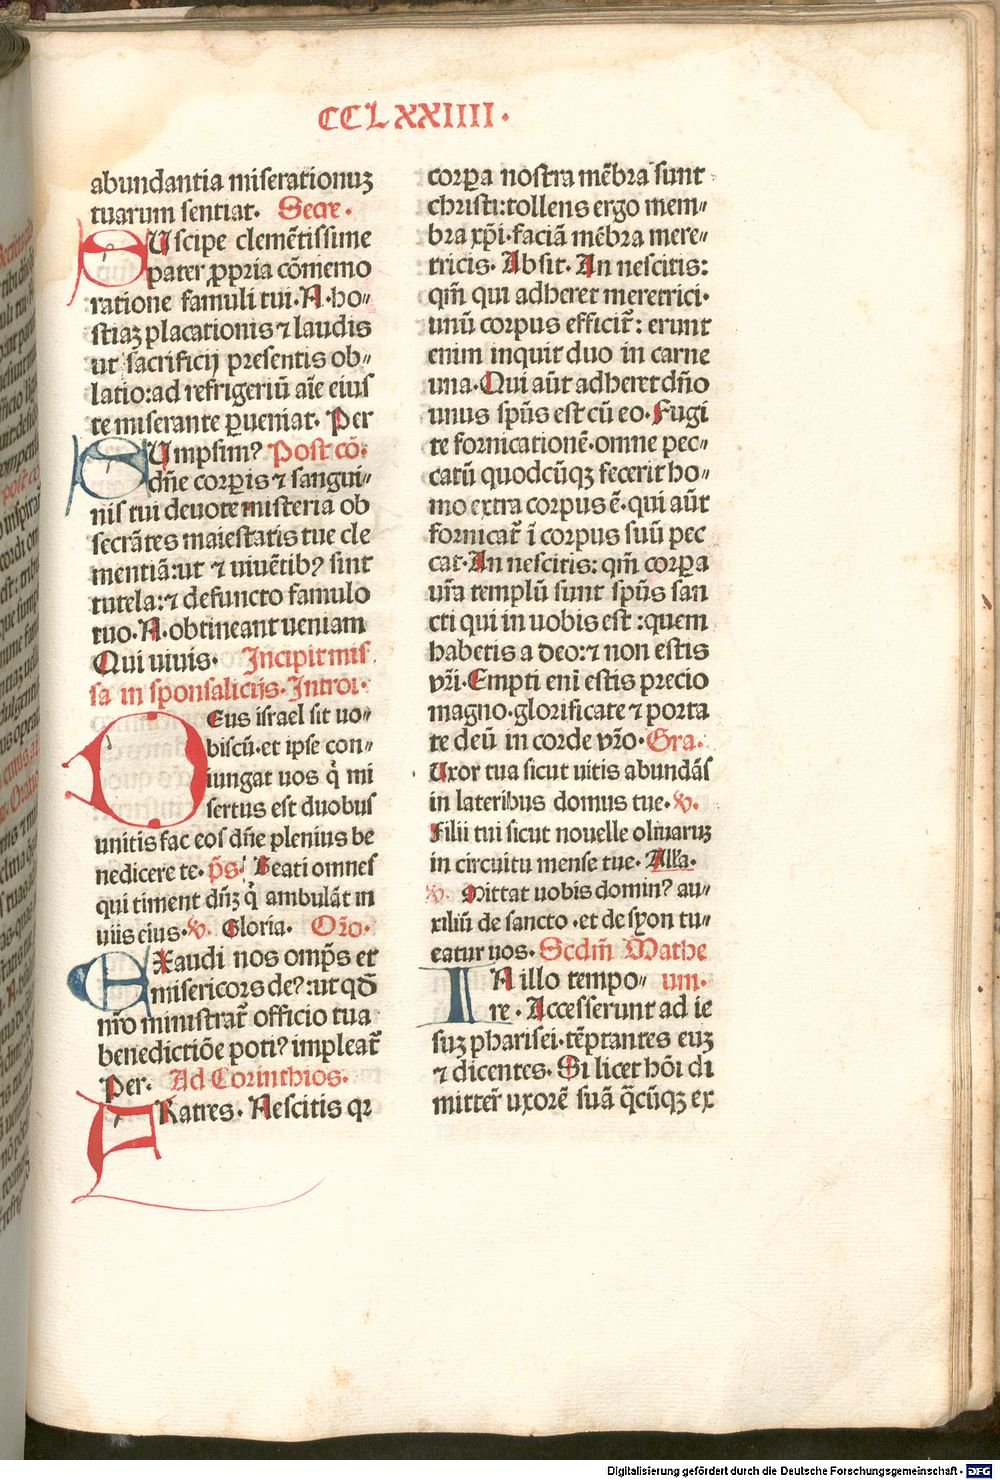 CCLXXIIII.
abundantia miserationuꝫ
tuarum sentiat. Secr.
SUscipe clemētissime
pater ꝓpria cōmemo
ratione famuli tui. N. ho⸗
stiaꝫ placationis ⁊ laudis
ut sacrificij presentis ob⸗
latio: ad refrigeriū aīe eius
te miserante ꝑueniat. Per
SUmpsimꝰ Post cō.
dn̄e corꝑis ⁊ sangui⸗
nis tui deuote misteria ob
secrātes maiestatis tue cle
mentiā: ut ⁊ uiuētibꝰ sint
tutela: ⁊ defuncto famulo
tuo. N. obtineant ueniam
Qui uiuis. Incipit mis
sa in sponsalicijs. Introi.
DEus israel sit uo⸗
biscū. et ipse con⸗
iungat uos q̇ mi
sertus est duobus
unitis fac eos dn̄e plenius be
nedicere te. p̄s. Beati omnes
qui timent dn̄ꝫ q̇ ambulāt in
uiis eius. v. Gloria. Or̄o.
EXaudi nos omp̄s et
misericors deꝰ: ut qđ
nr̄o ministrat᷑ officio tua
benedictiōe potiꝰ impleat᷑
Per. Ad Corinthios.
FRatres. Nescitis qꝛ
corꝑa nostra mēbra sunt
christi: tollens ergo mem⸗
bra xp̄i. faciā mēbra mere⸗
tricis. Absit. An nescitis:
qm̄ qui adheret meretrici.
unū corpus efficit᷑: erunt
enim inquit duo in carne
una. Qui aūt adheret dn̄o
unus sp̄us est cū eo. Fugi
te fornicationē. omne pec⸗
catū quodcūqꝫ fecerit ho⸗
mo extra corpus ē. qui aūt
fornicat᷑ ī corpus suū pec
cat. An nescitis: qm̄ corꝑa
ur̄a templū sunt sp̄us san
cti qui in uobis est: quem
habetis a deo: ⁊ non estis
vr̄i. Empti eni estis precio
magno. glorificate ⁊ porta
te deū in corde vr̄o. Gra.
Uxor tua sicut uitis abundās
in lateribus domus tue. v.
Filii tui sicut nouelle oliuaruꝫ
in circuitu mense tue. All̄a.
v. Mittat uobis dominꝰ au⸗
xiliū de sancto. et de syon tu⸗
eatur uos. Scdm̄ Mathe
IN illo tempo⸗ um.
re. Accesserunt ad ie
suꝫ pharisei. tēptantes euꝫ
⁊ dicentes. Si licet hōi di
mitter᷑ uxorē suā q̄cūqꝫ ex
Digitalisierung gefördert durch die Deutsche Forschungsgemeinschaft - DFG